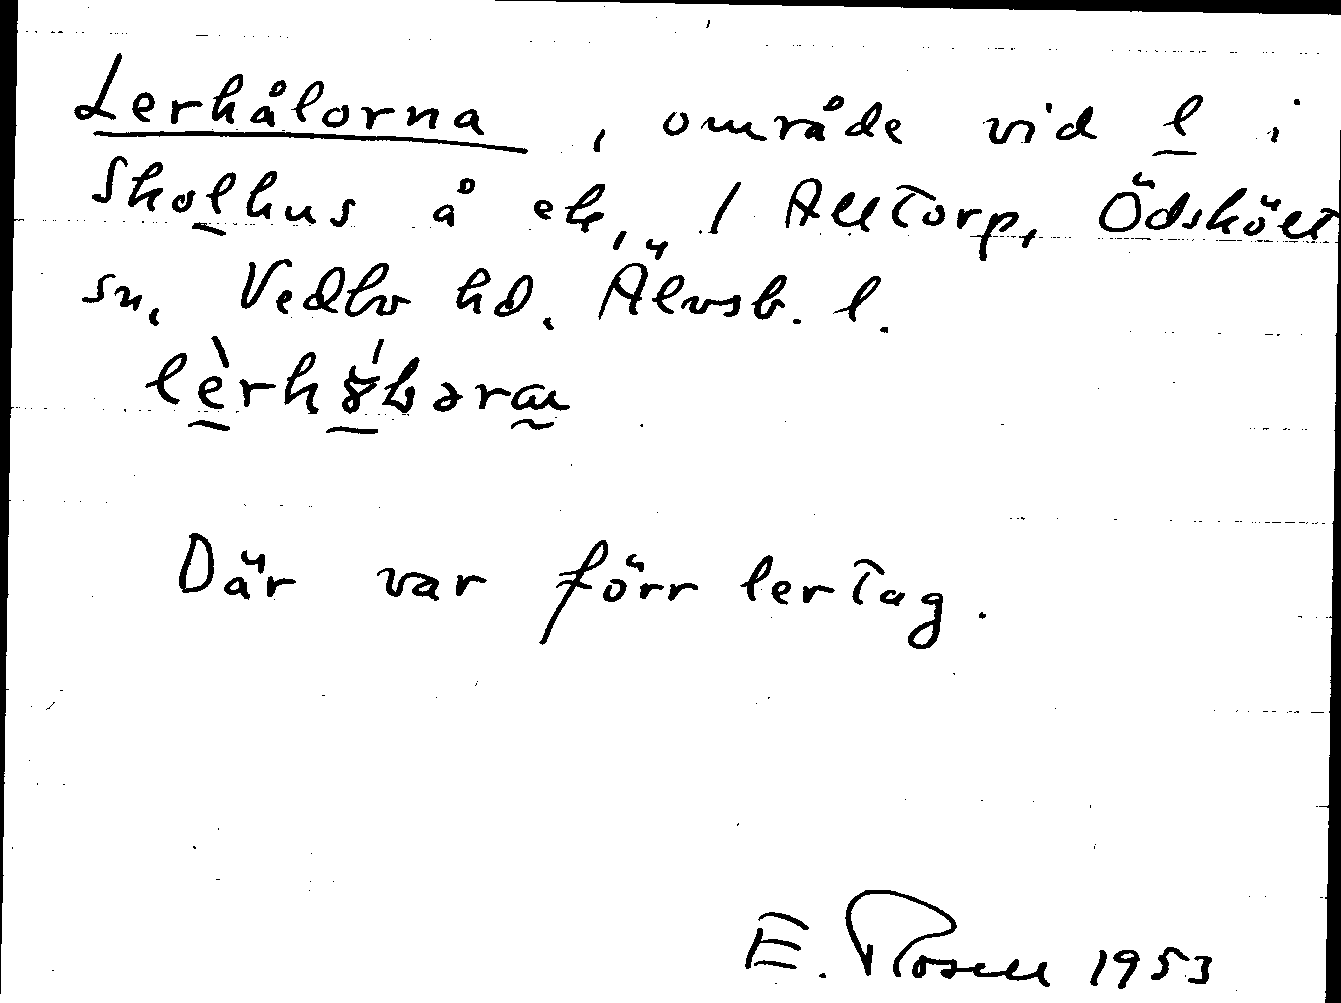 Lerhålorna, område vid l i
Skolhus å ek, 1 Alltorp, Ödskölt
sn, Vedbo hd. Älvsb. l.
Där var förr lertag.
E. Rosell 1953